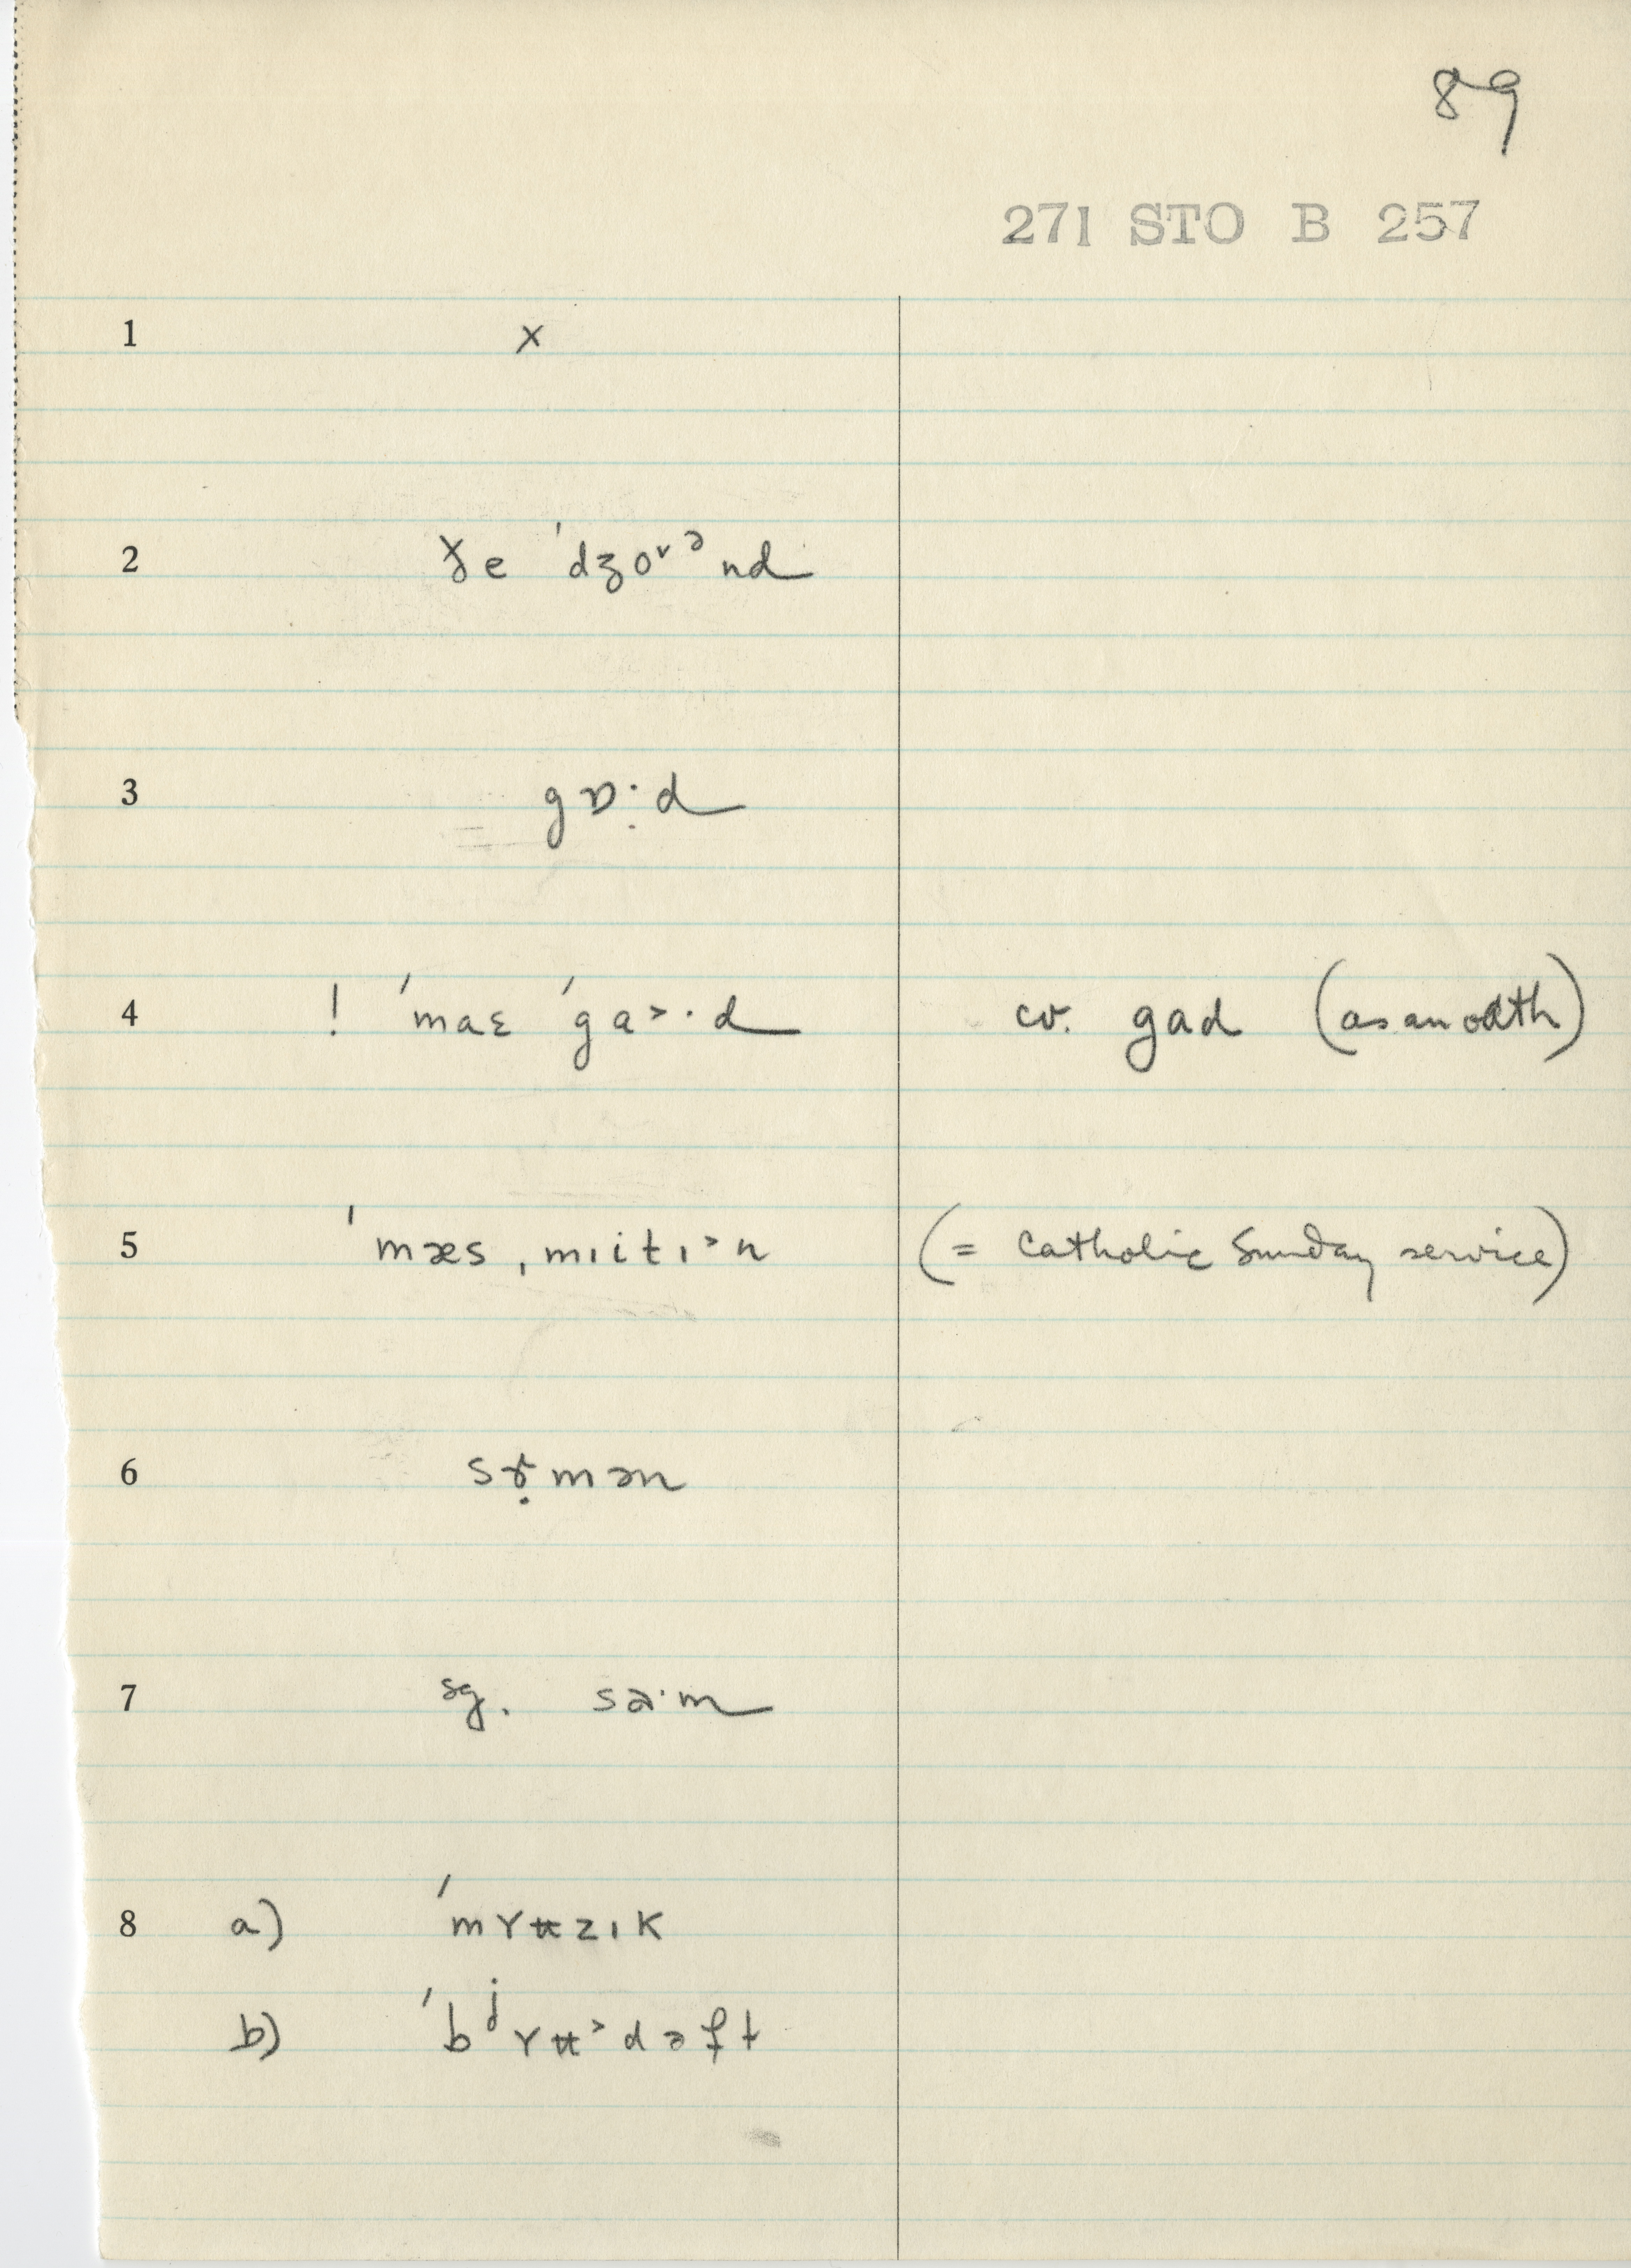 89
271 STO B 257
1 x
2 ɣ̵e ˈdʒoᵛᵊnd
3 gɒ:d
4 ! ˈmaɛ ˈga>·d cv. gad (as an oath)
5 ˈmæs ˌmɪitɪ>n (= Catholic Sunday service)
6 sɝ̣mən
7 sg. sa·m
8 a) ˈmʏʉzɪk
b) ˈbʲʏʉ>dəft